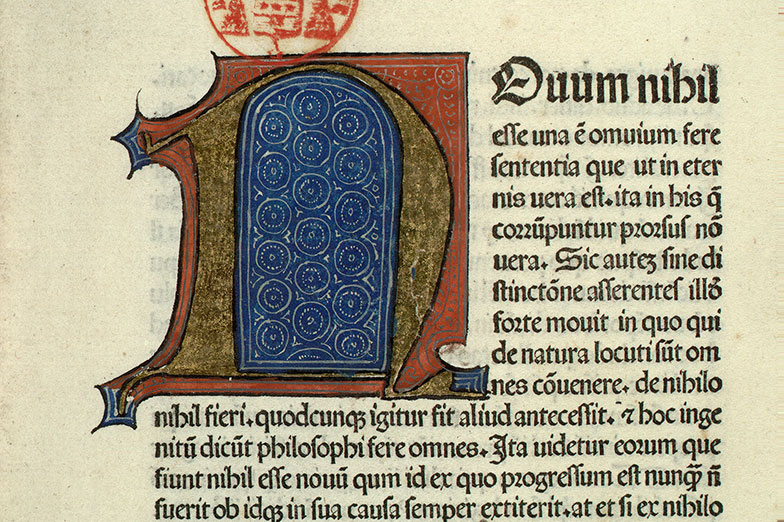 NOuum nihil
esse una ē omuium fere
sententia que ut in eter
nis uera est. ita in his q̄
corrūpuntur prorsus nō
uera. Sic auteʒ sine di
stinctōne asserentes illoꝝ
forte movit in quo qui
de natura locuti sūt om
nes cōuenere. de nihilo
nihil fieri. quodcunqꝫ igitur fit aliud antecessit. ⁊ hoc inge
nitū dicūt philosophi fere omnes. Ita uidetur eorum que
fiunt nihil esse nouū qum id ex quo progressum est nunqꝫ̄ n̄
fuerit ob idqꝫ in sua causa semper extiterit. at et si ex nihilo